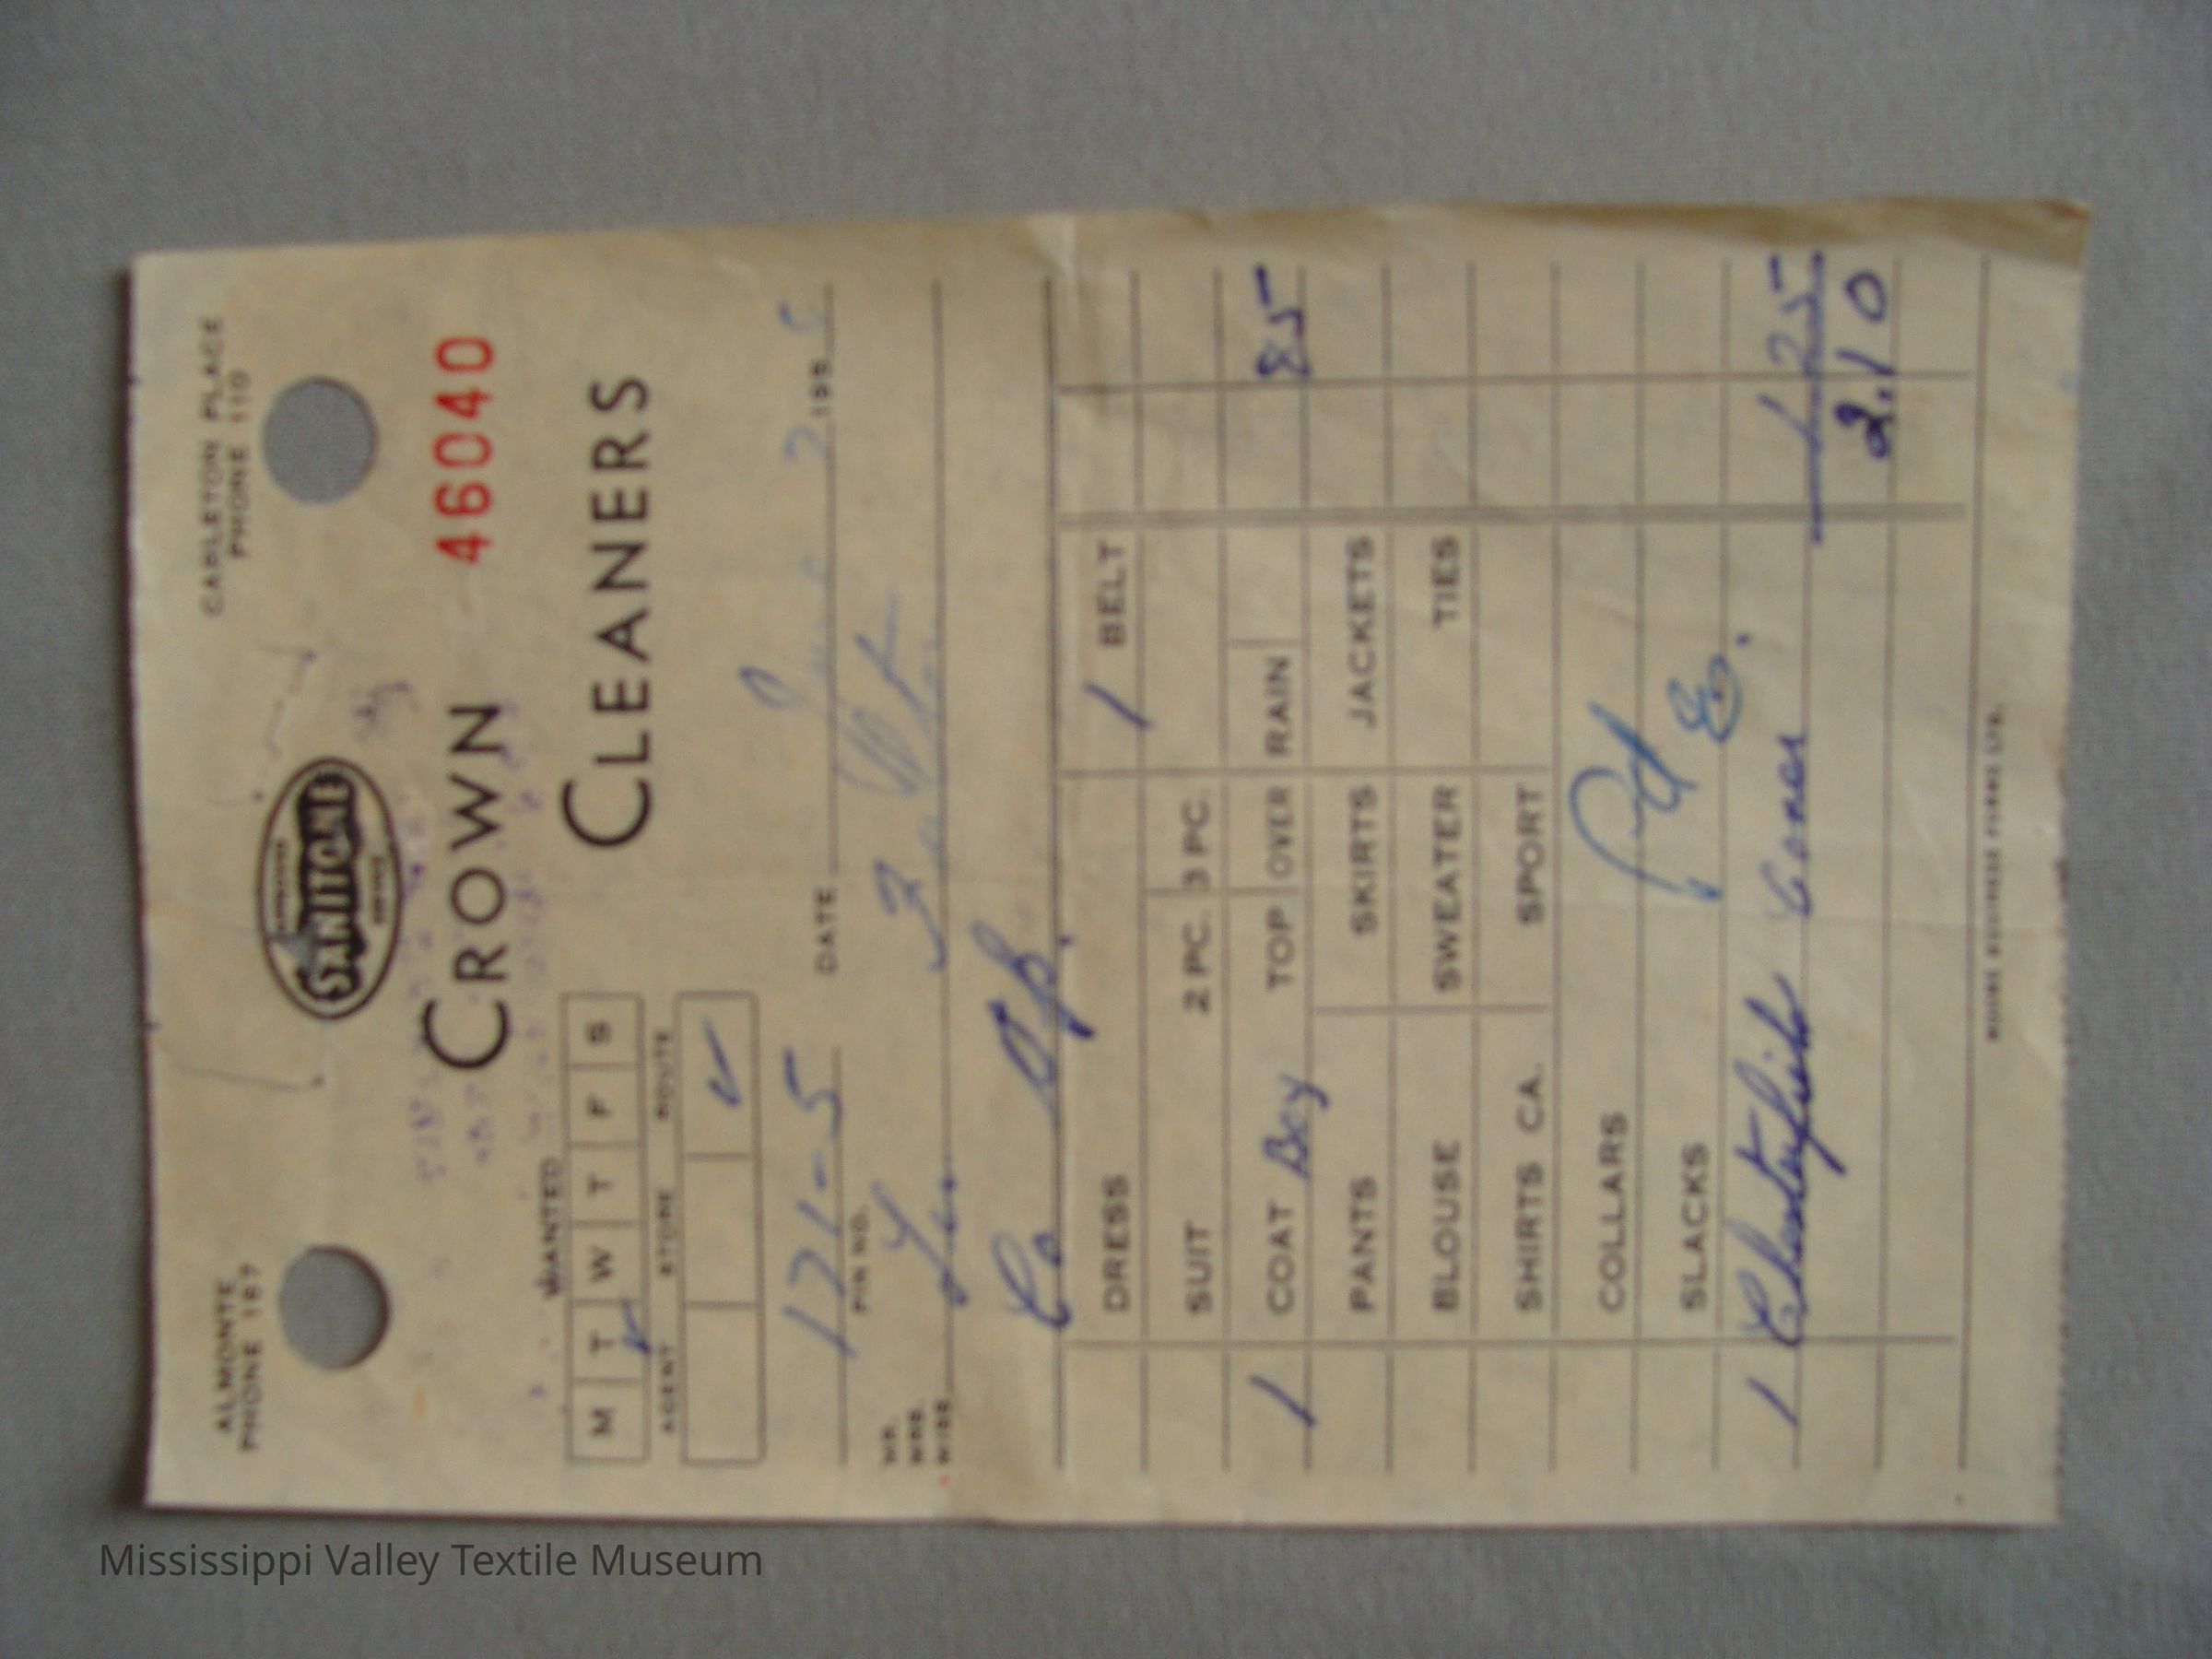 ALMONTE
PHONE 167
CARLETON PLACE
PHONE 110
SANITONE
SERVICE
CROWN 46040
CLEANERS
WANTED
M T W T F S
AGENT STORE ROUTE
171-5
PIN NO.
DATE 195
MR.
MRS.
MISS
Co
DRESS 1 BELT
SUIT 2 PC. 3 PC.
1 COAT Boy TOP OVER RAIN 85
PANTS SKIRTS JACKETS
BLOUSE SWEATER TIES
SHIRTS CA. SPORT
COLLARS
Pd
SLACKS
1 Chesterfield Cover 1 25
2.10
MOORE BUSINESS FORMS LTD.
Mississippi Valley Textile Museum